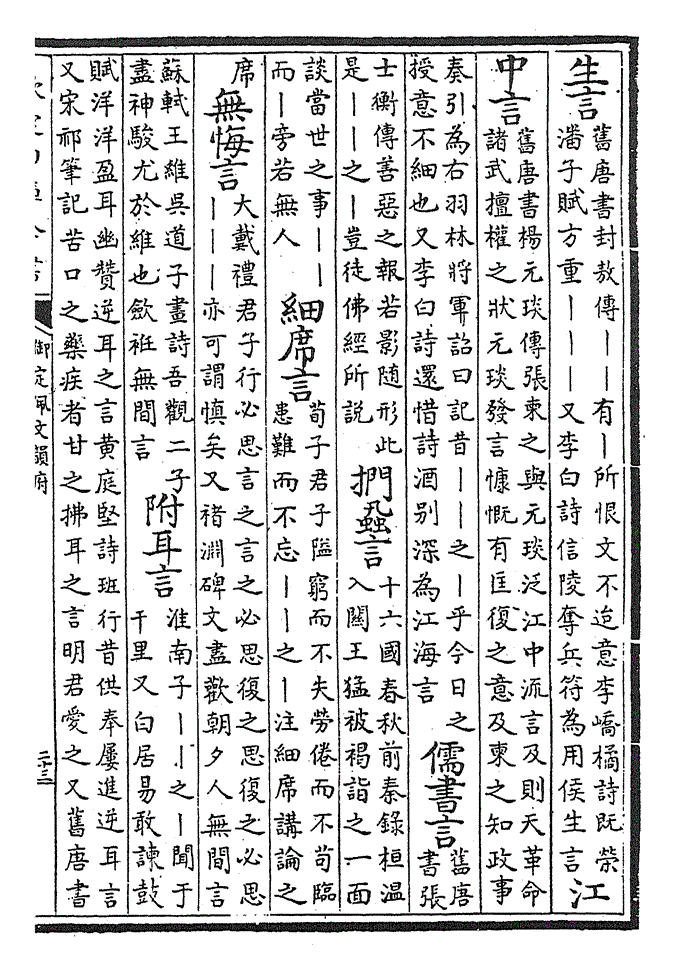 生言
舊唐書封敖傳丨丨有丨所恨文不迨意李嶠橘詩既榮
潘子賦方重丨丨丨又李白詩信陵奪兵符為用侯生言
江
中言
舊唐書楊元琰傳張柬之與元琰泛江中流言及則天革命
諸武擅權之狀元琰發言慷慨有匡復之意及柬之知政事
奏引為右羽林將軍詔曰記昔丨丨之丨乎今日之
授意不細也又李白詩還惜詩酒別深為江海言
儒書言
舊唐
書張
士衡傳善惡之報若影隨形此
是丨丨之丨豈徒佛經所說
捫蝨言
十六國春秋前秦錄桓溫
入關王猛被褐詣之一面
談當世之事丨丨
而丨旁若無人
細席言
荀子君子隘窮而不失勞倦而不苟臨
患難而不忘丨丨之丨注細席講論之
席
無悔言
大戴禮君子行必思言之言之必思復之思復之必思
丨丨丨亦可謂慎矣又褚淵碑文盡歡朝夕人無間言
蘇軾王維吳道子畫詩吾觀二子
盡神駿尤於維也歛衽無間言
附耳言
淮南子丨丨之丨聞于
千里又白居易敢諫鼓
賦洋洋盈耳幽贊逆耳之言黄庭堅詩班行昔供奉屢進逆耳言
又宋祁筆記苦口之藥疾者甘之拂耳之言明君愛之又舊唐書
御定佩文韻府
二十三